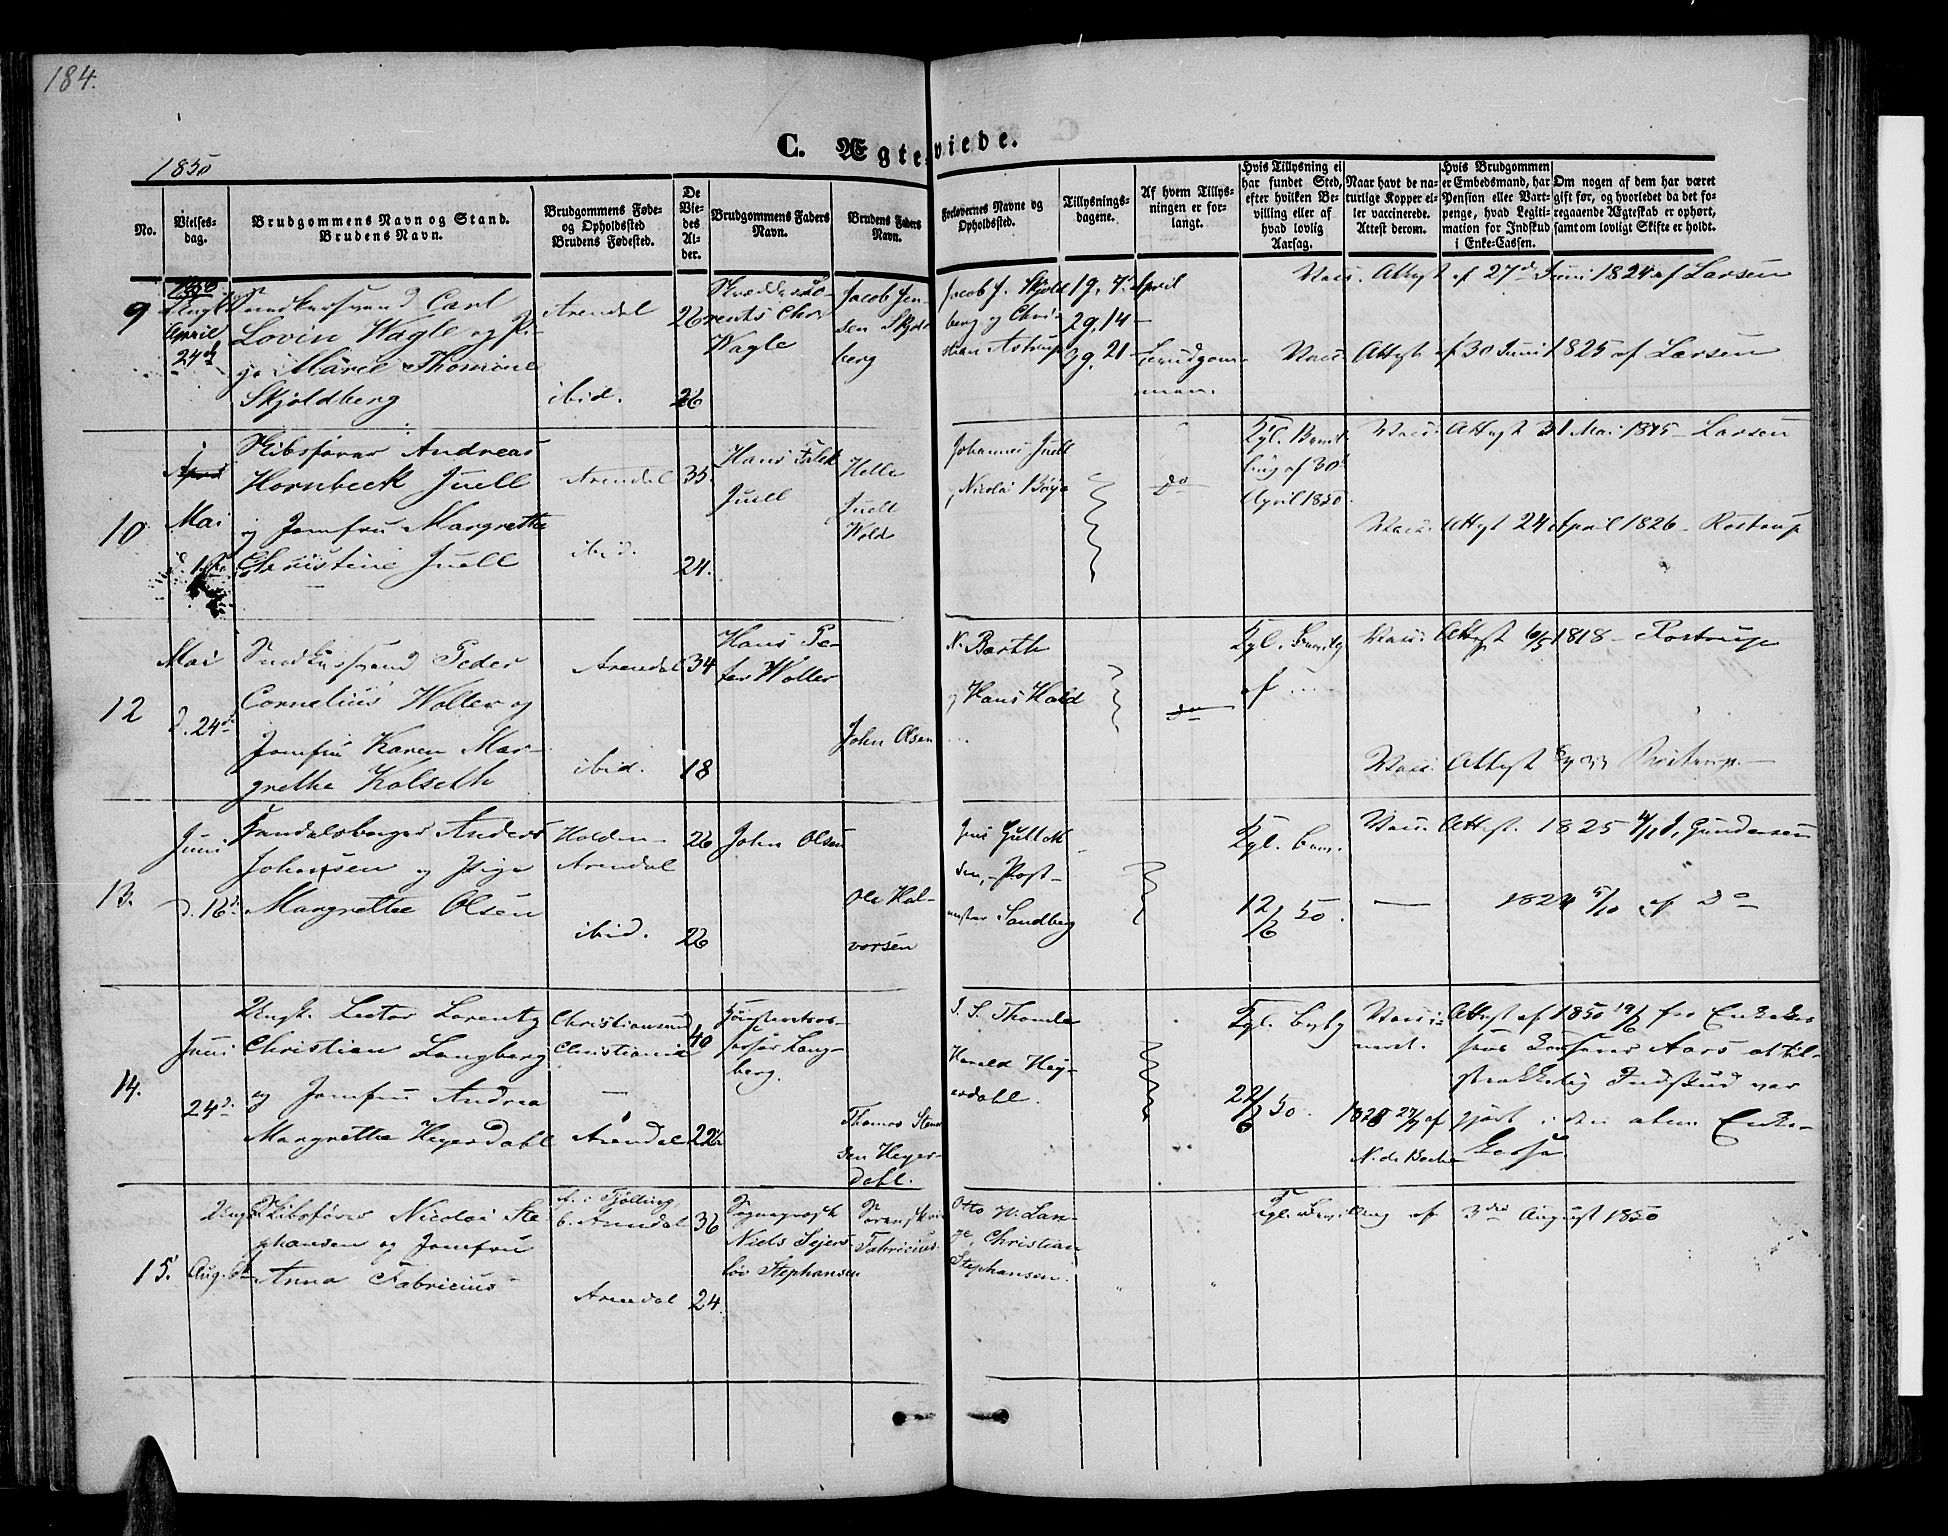 184.
C. Ægteviede.
1850
No.
Vielses-
dag.
Brudgommens Navn og Stand.
Brudens Navn.
Brudgommens Føde-
og Opholdssted
Brudens Fødested.
De
Vie-
des
Al-
der.
Brudgommens Faders
Navn.
Brudens Faders
Navn.
Forlovernes Navne og
Opholdssted.
Tillysnings-
dagene.
Af hvem Tillys-
ningen er for-
langt.
Hvis Tillysning ei
har fundet Sted,
efter hvilken Be-
villing eller af
hvad lovlig
Aarsag.
Naar havt de na-
turlige Kopper el-
ler vaccinerede.
Attest derom.
Hvis Brudgommen
er Embedsmand, har
Pension eller Vart-
penge, hvad Legiti-
mation for Indskud
i Enke-Cassen.
Om nogen af dem har været
gift før, og hvorledet da det fo-
regaaende Ægteskab er ophørt,
samt om lovligt Skifte er holdt.
9
1850
April
24d
Carl
Lovin Wagle og Pi-
ge Maren Thomine
Skjoldberg
Arendal
ibid.
26
26
Wagle
Jacob Jen-
sen Skjold
berg
Jacob J. Skjold
berg og Chri-
stian Astrup
19, 7. April
29, 14 -
39, 21 -
Brudgom-
men.
Vacc. Attest af 27d Juni 1824 af Larsen
Vacc. Attest af 30 Juni 1825 af Larsen
10
April
Mai
Skibsfører Andreas
Hornbeck Juell
og Jomfru Margrethe
Christine Juell
Arendal
ibid.
35
24.
Hans Falck
Juell
Helle
Juell
Wold
Johannes Juell
og Nicolai Bøye
do
Kgl. Bevil-
ling af 30d
April 1850.
Vacc. Attest 31 Mai 1815 - Larsen
Vacc. Attest 24 April 1826 - Rostrup
12
Mai
d. 24d
Snedkersvend Peder
Cornelius Woller og
Jomfru Karen Mar-
grethe Kalseth
Arendal
ibid.
34
18
Hans Pe-
ter Woller
John Olsen
N. Barth
og Hans Hald
do
Kgl. Bevilg
af ....
Vacc. Attest 6/5 1818 - Rostrup
Vacc. Attest Rostrup -
13.
Juni
d. 16d
Anders
Johansen og Pige
Margrethe Olsen
Holden -
Arendal
ibid.
26
26
John Olsen
Ole Hal-
vorsen
Jens
Post-
mester Sandberg
Kgl. Bev.
12/6 50.
Vacc. Attest. 1825 Gundersen
— 1824 5/10 af Do
14.
Juni
24d
Ungk. Lector Lorentz
Christian Langberg
og Jomfru Andrea
Margrethe Heyerdahl
Christiansund
Christiania
—
Arendal
40
22
Lang-
berg.
Thomas Sten-
sen Heyer-
dahl.
Harald Hey-
erdahl.
Kgl. Bevlg
22/6 50.
Vacci-
neret.
af
N. de Besche
Attest af 1850 19/6 for Enkekas
sens Aars at til-
strækkelig Indskud var
gjort i den alm Enke-
Kasse
15.
Aug. 6
Ungk. Skibsfører Nicolai Ste
phansen og Jomfru
Anna Fabricius
f. i Tjølling,
b. Arendal
Arendal
36
24.
Sogneprest
Niels Sejers-
løv Stephansen
Sorenskriv
Fabricius.
Otto H. Lan-
ge, Christian
Stephansen.
Kgl. Bevilling af 3die August 1850